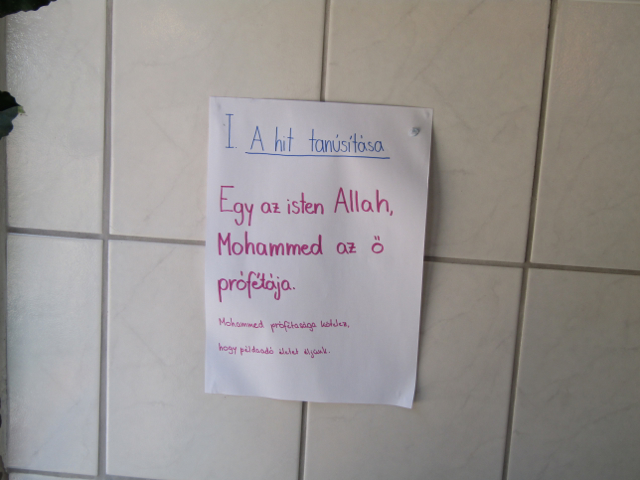 I. A hit tanúsítása
Egy az isten Allah,
Mohammed az ő
prófétája.
Mohammed prófétasága kötelez,
hogy példaadó életet éljünk.